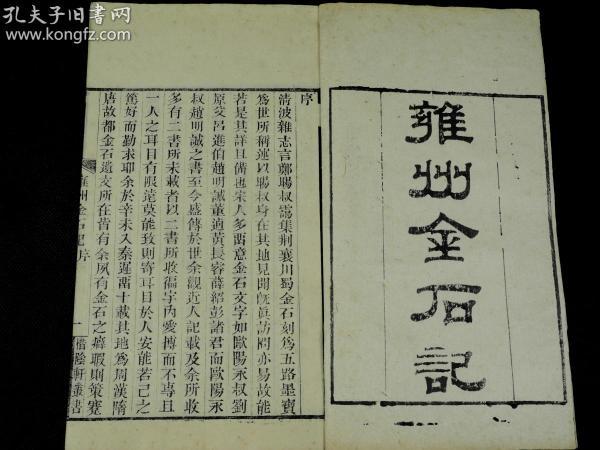 孔夫子旧书网
www.kongfz.com
雍州金石記
序
清波雜志言鄭暘叔靄集荆襄川蜀金石刻爲五路墨寶
爲世所稱運以暘叔身在其地見聞旣眞訪問亦易故能
若是其詳且備也宋人多酉意金石文字如歐陽永叔劉
原父呂進伯趙明誠董逌黃長睿薛紹彭諸君而歐陽永
叔趙明誠之書至今盛傳於世余觀近人記載及余所收
多有二書所未載者以二書所收徧宇內愛博而不專且
一人之耳目有限遠莫能致則寄耳目於人安能若己之
篤好而勤求耶余於辛未入秦遲畱十載其地爲周漢隋
唐故都金石遺文所在皆有余夙有金石之癖暇則策蹇
雍州金石記序
一
惜陰軒叢書